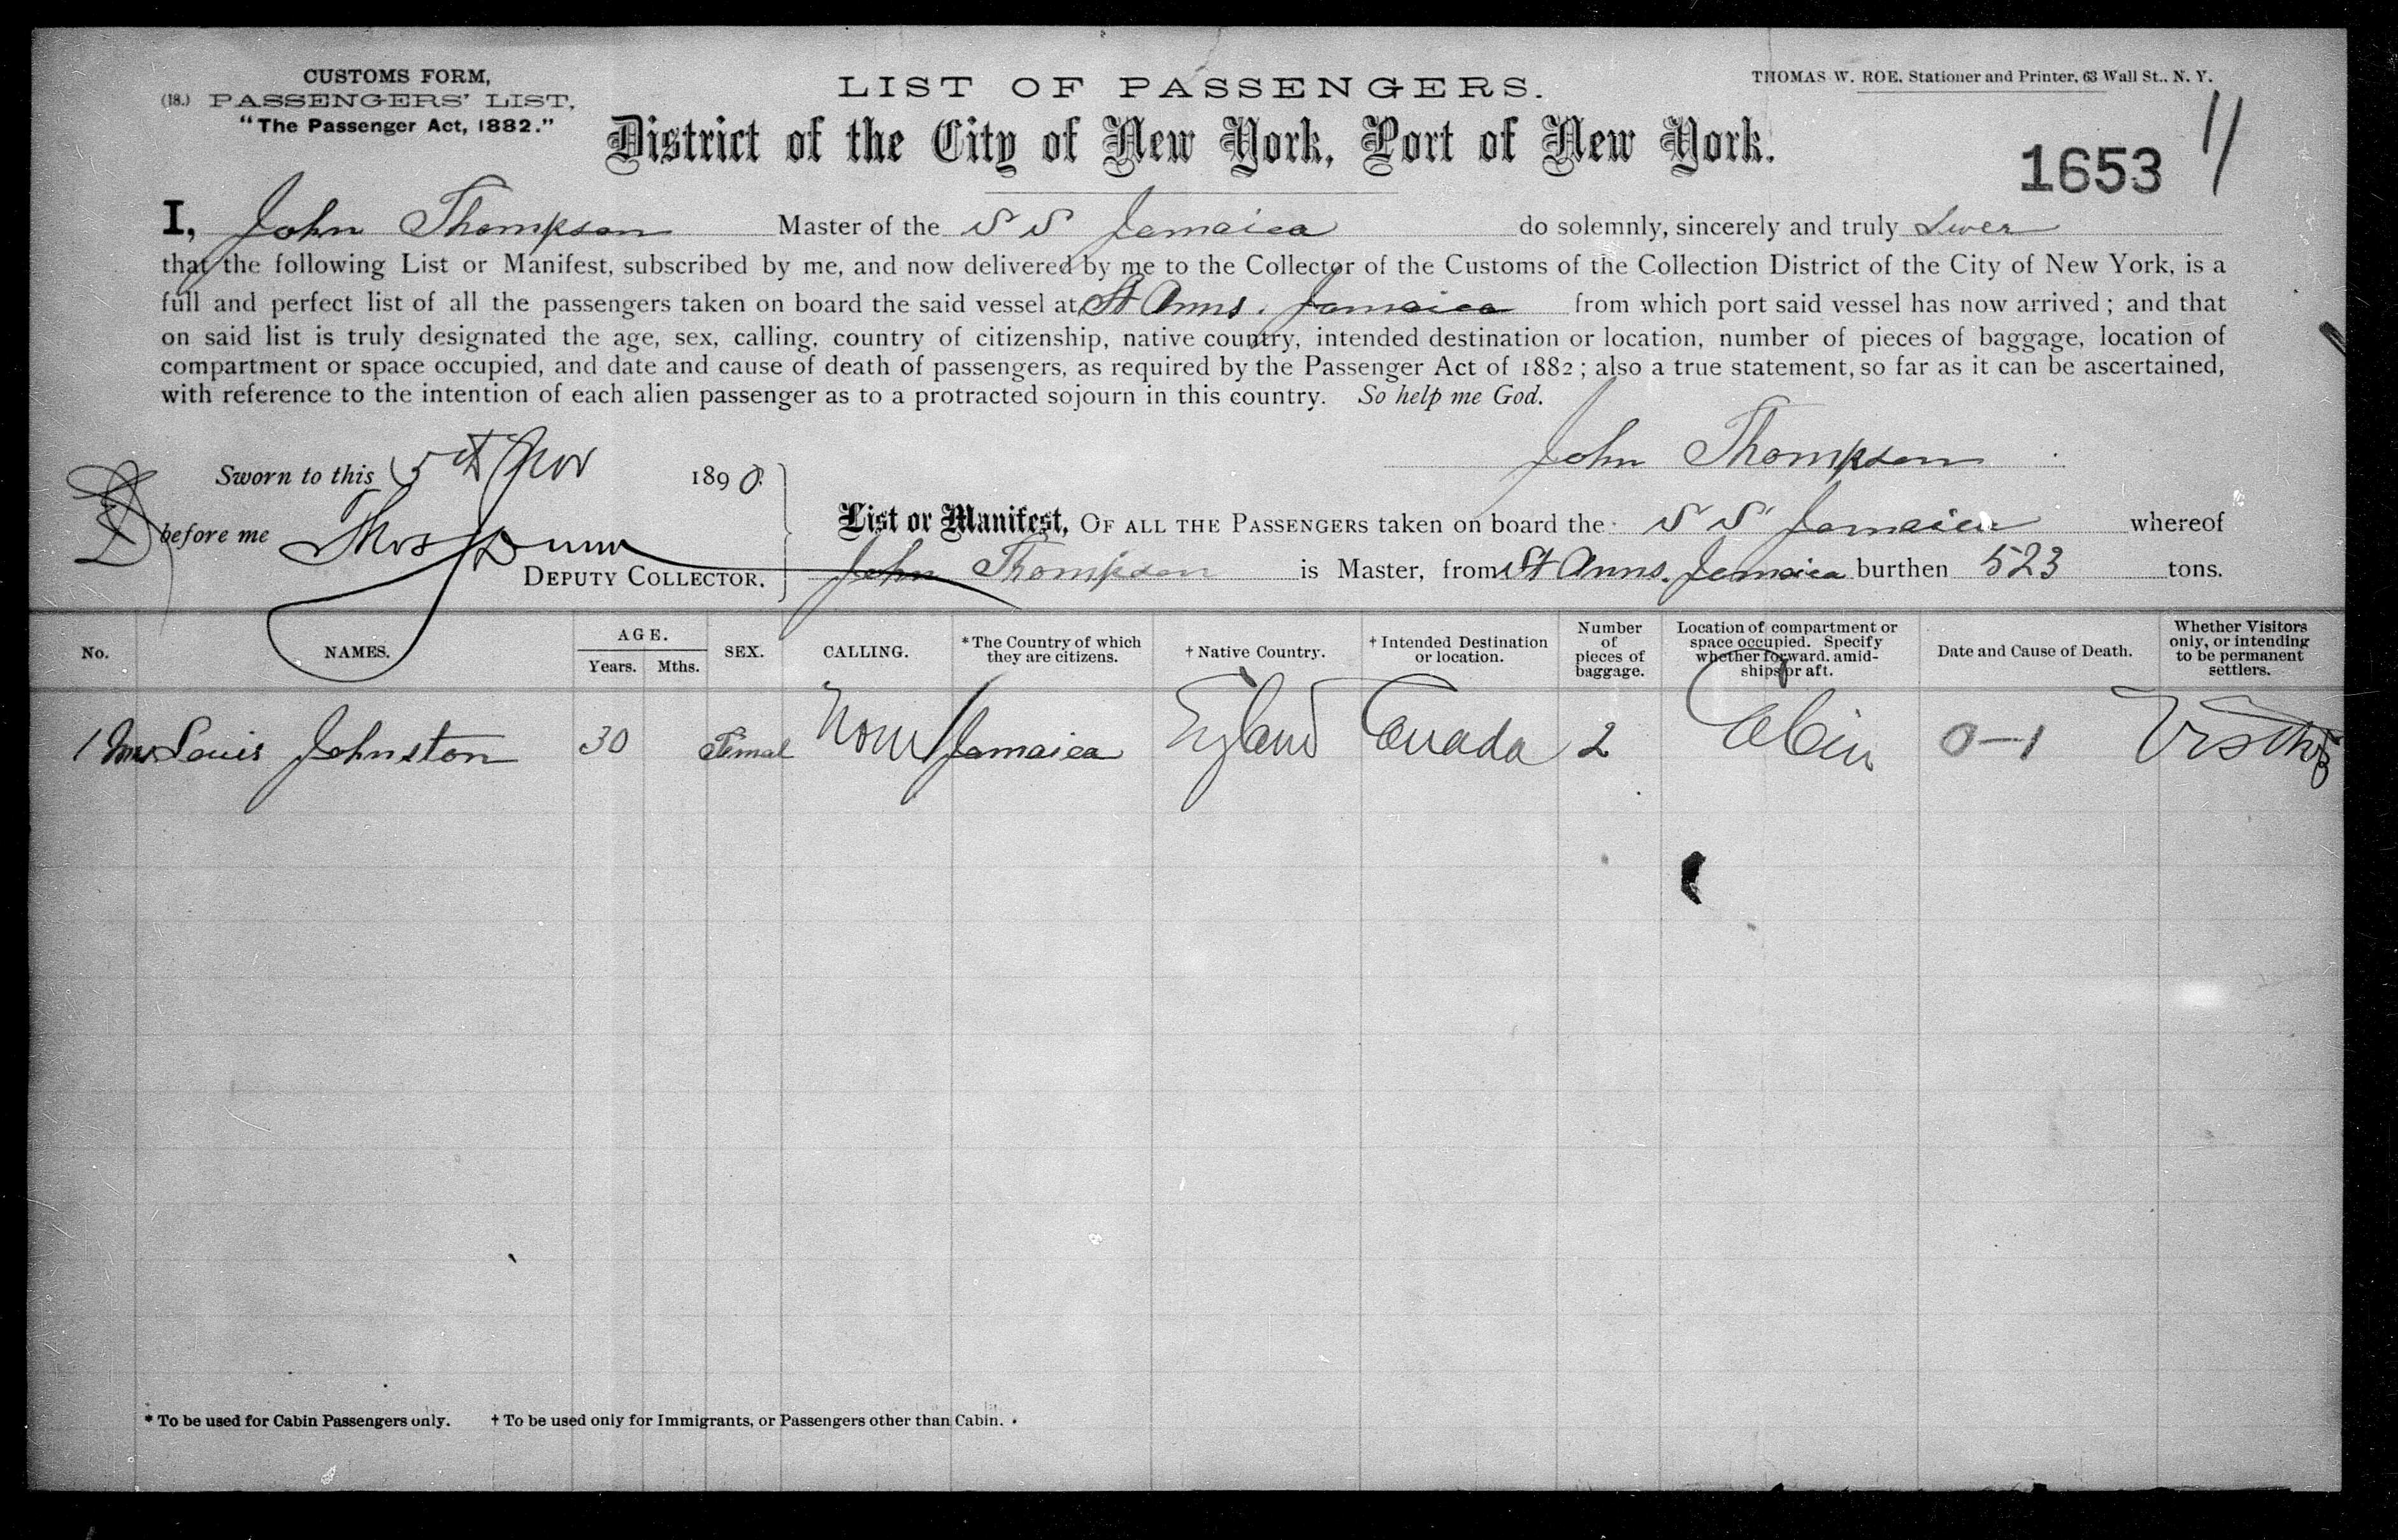 CUSTOMS FORM,
(18.) PASSENGERS' LIST,
"The Passenger Act, 1882."
LIST OF PASSENGERS.
THOMAS W. ROE, Stationer and Printer, 63 Wall St., N. Y.
District of the City of New York, Port of New York.
1653 11
I, John Thompson Master of the S S Jamaica do solemnly, sincerely and truly Swer
that the following List or Manifest, subscribed by me, and now delivered by me to the Collector of the Customs of the Collection District of the City of New York, is a
full and perfect list of all the passengers taken on board the said vessel at St Anns. Jamaica from which port said vessel has now arrived; and that
on said list is truly designated the age, sex, calling, country of citizenship, native country, intended destination or location, number of pieces of baggage, location of
compartment or space occupied, and date and cause of death of passengers, as required by the Passenger Act of 1882; also a true statement, so far as it can be ascertained,
with reference to the intention of each alien passenger as to a protracted sojourn in this country. So help me God.
John Thompson
Sworn to this 5th Nov 1890.
before me Thos Dunn
DEPUTY COLLECTOR.
List or Manifest, OF ALL THE PASSENGERS taken on board the S S Jamaica whereof
John Thompson is Master, from St Anns. Jamaica burthen 523 tons.
No. NAMES. AGE. Years. Mths. SEX. CALLING. *The Country of which they are citizens. † Native Country. † Intended Destination or location. Number of pieces of baggage. Location of compartment or space occupied. Specify whether forward, amidships or aft. Date and Cause of Death. Whether Visitors only, or intending to be permanent settlers.
1 Mrs Louis Johnston 30 Femal None Jamaica England Canada 2 Cabin 0-1
* To be used for Cabin Passengers only. † To be used only for Immigrants, or Passengers other than Cabin.